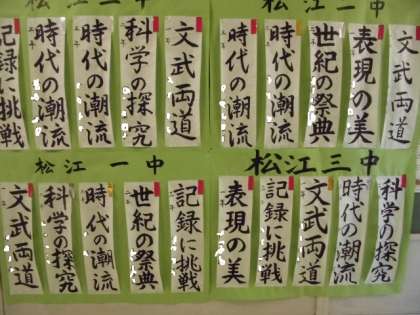 松江一中
文武両道
表現の美
世紀の祭典
時代の潮流
時代の潮流
文武両道
科学の探究
時代の潮流
時代の潮流
記録に挑戦
松江三中
科学の探究
時代の潮流
文武両道
記録に挑戦
表現の美
松江一中
記録に挑戦
世紀の祭典
時代の潮流
科学の探究
文武両道